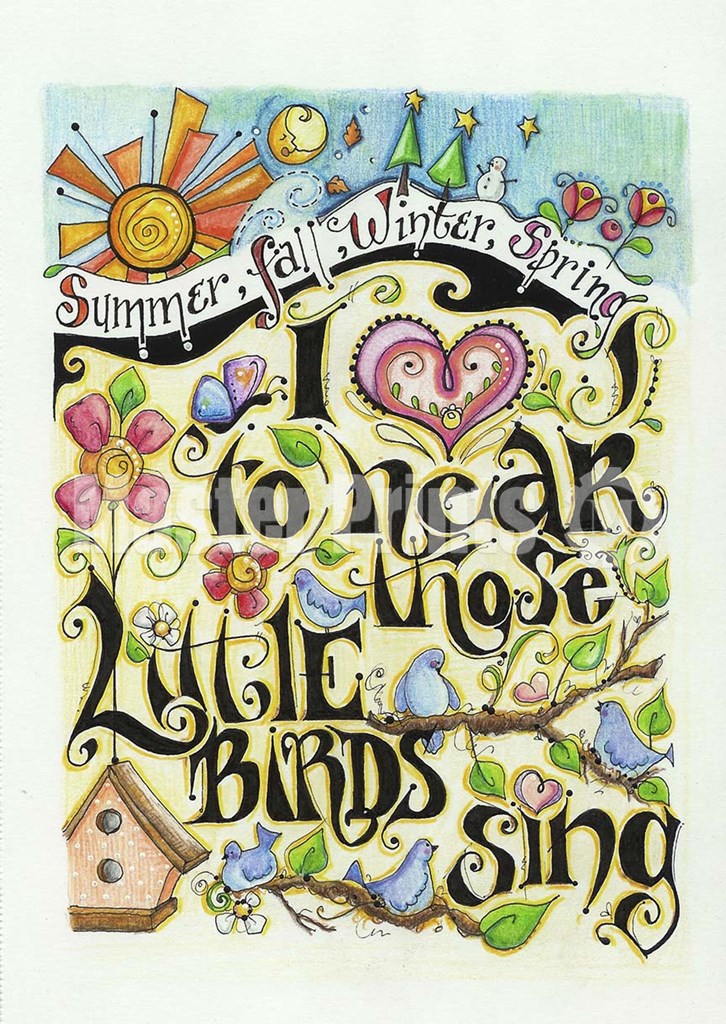 Summer, Fall, Winter, Spring
I
to hear
those
Little
Birds
sing